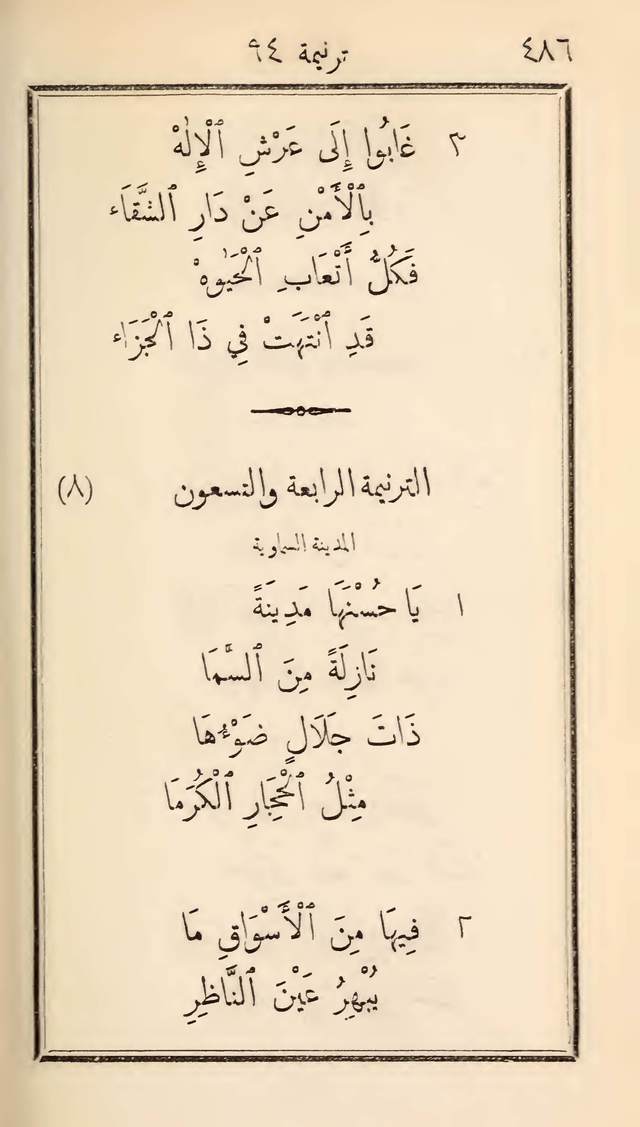 ٤٨٦ ترنيمة ٩٤
٣ غَابُوا إِلَى عَرْشِ ٱلْإِلٰهْ
بِٱلْأَمْنِ عَنْ دَارِ ٱلشَّقَاء
فَكُلُّ أَتْعَابِ ٱلْحَيٰوهْ
قَدِ ٱنْتَهَتْ فِي ذَا ٱلْجَزَاء
الترنيمة الرابعة والتسعون (٨)
المدينة السماوية
١ يَا حُسْنَهَا مَدِينَةً
نَازِلَةً مِنَ ٱلسَّمَا
ذَاتَ جَلَالٍ ضَوْءُهَا
مِثْلُ ٱلْحِجَارِ ٱلْكُرَمَا
٢ فِيهَا مِنَ ٱلْأَسْوَاقِ مَا
يُبْهِرُ عَيْنَ ٱلنَّاظِرِ